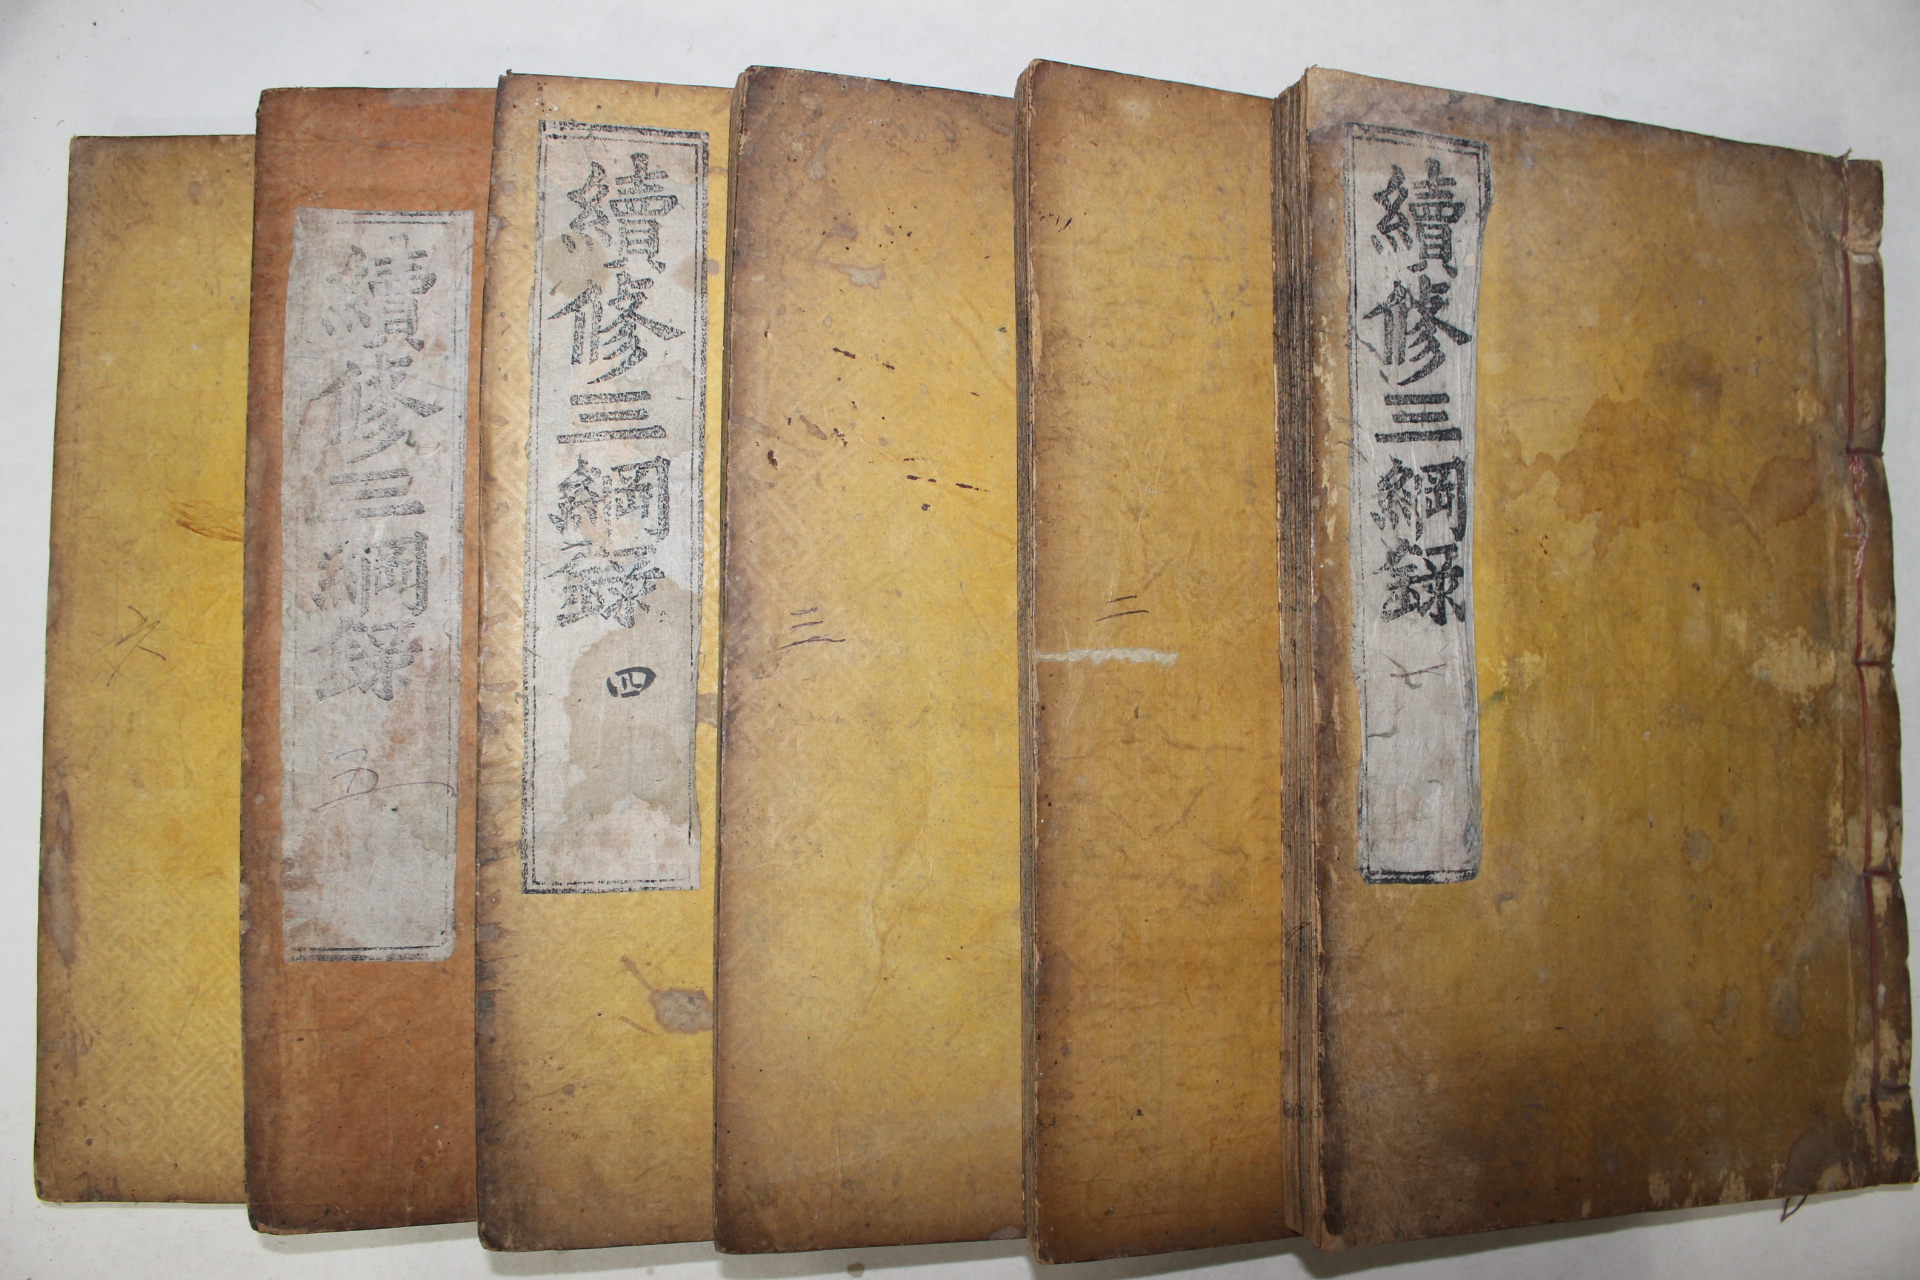 續修三綱錄
二
三
續修三綱錄
四
續修三綱錄
五
六